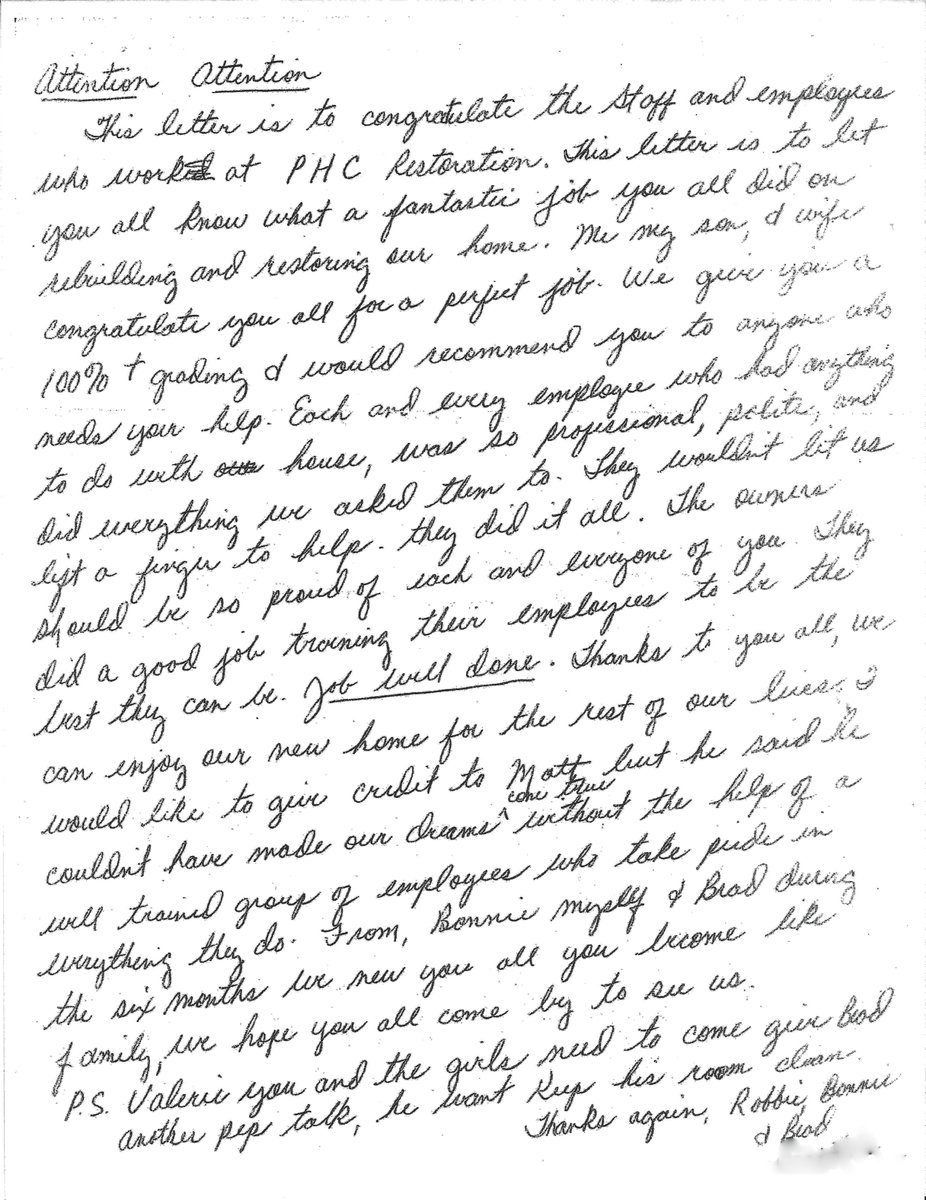 Attention Attention
This letter is to congratulate the Staff and employees
who work at PHC Restoration. This letter is to let
you all know what a fantastic job you all did on
rebuilding and restoring our home. Me my son, & wife
congratulate you all for a perfect job. We give you a
100% + grading & would recommend you to anyone who
needs your help. Each and every employee who had anything
to do with our house, was so professional, polite, and
did everything we asked them to. They wouldn't let us
lift a finger to help. they did it all. The owners
should be so proud of each and everyone of you They
did a good job training their employees to be the
best they can be. Job well done. Thanks to you all, we
can enjoy our new home for the rest of our lives. I
would like to give credit to Matt but he said he
couldn't have made our dreams come true without the help of a
well trained group of employees who take pride in
everything they do. From, Bonnie myself & Brad during
the six months we new you all you become like
family, we hope you all come by to see us.
P.S. Valerie you and the girls need to come give Brad
another pep talk, he want Keep his room clean.
Thanks again, Robbie, Bonnie
& Brad